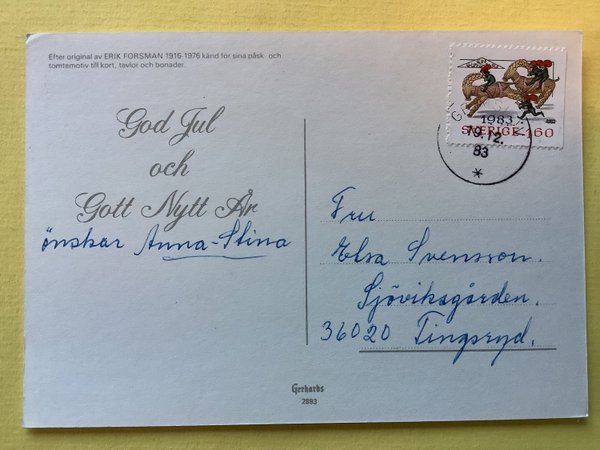 Efter original av ERIK FORSMAN 1916-1976 känd för sina påsk och
tomtemotiv till kort, tavlor och bonader.
God Jul
och
Gott Nytt År
önskar Anna-Stina
1983
SVERIGE 160
19.12.
83
Fru
Elsa Svensson.
Sjöviksgården.
36020 Tingsryd.
Gerhards
2893